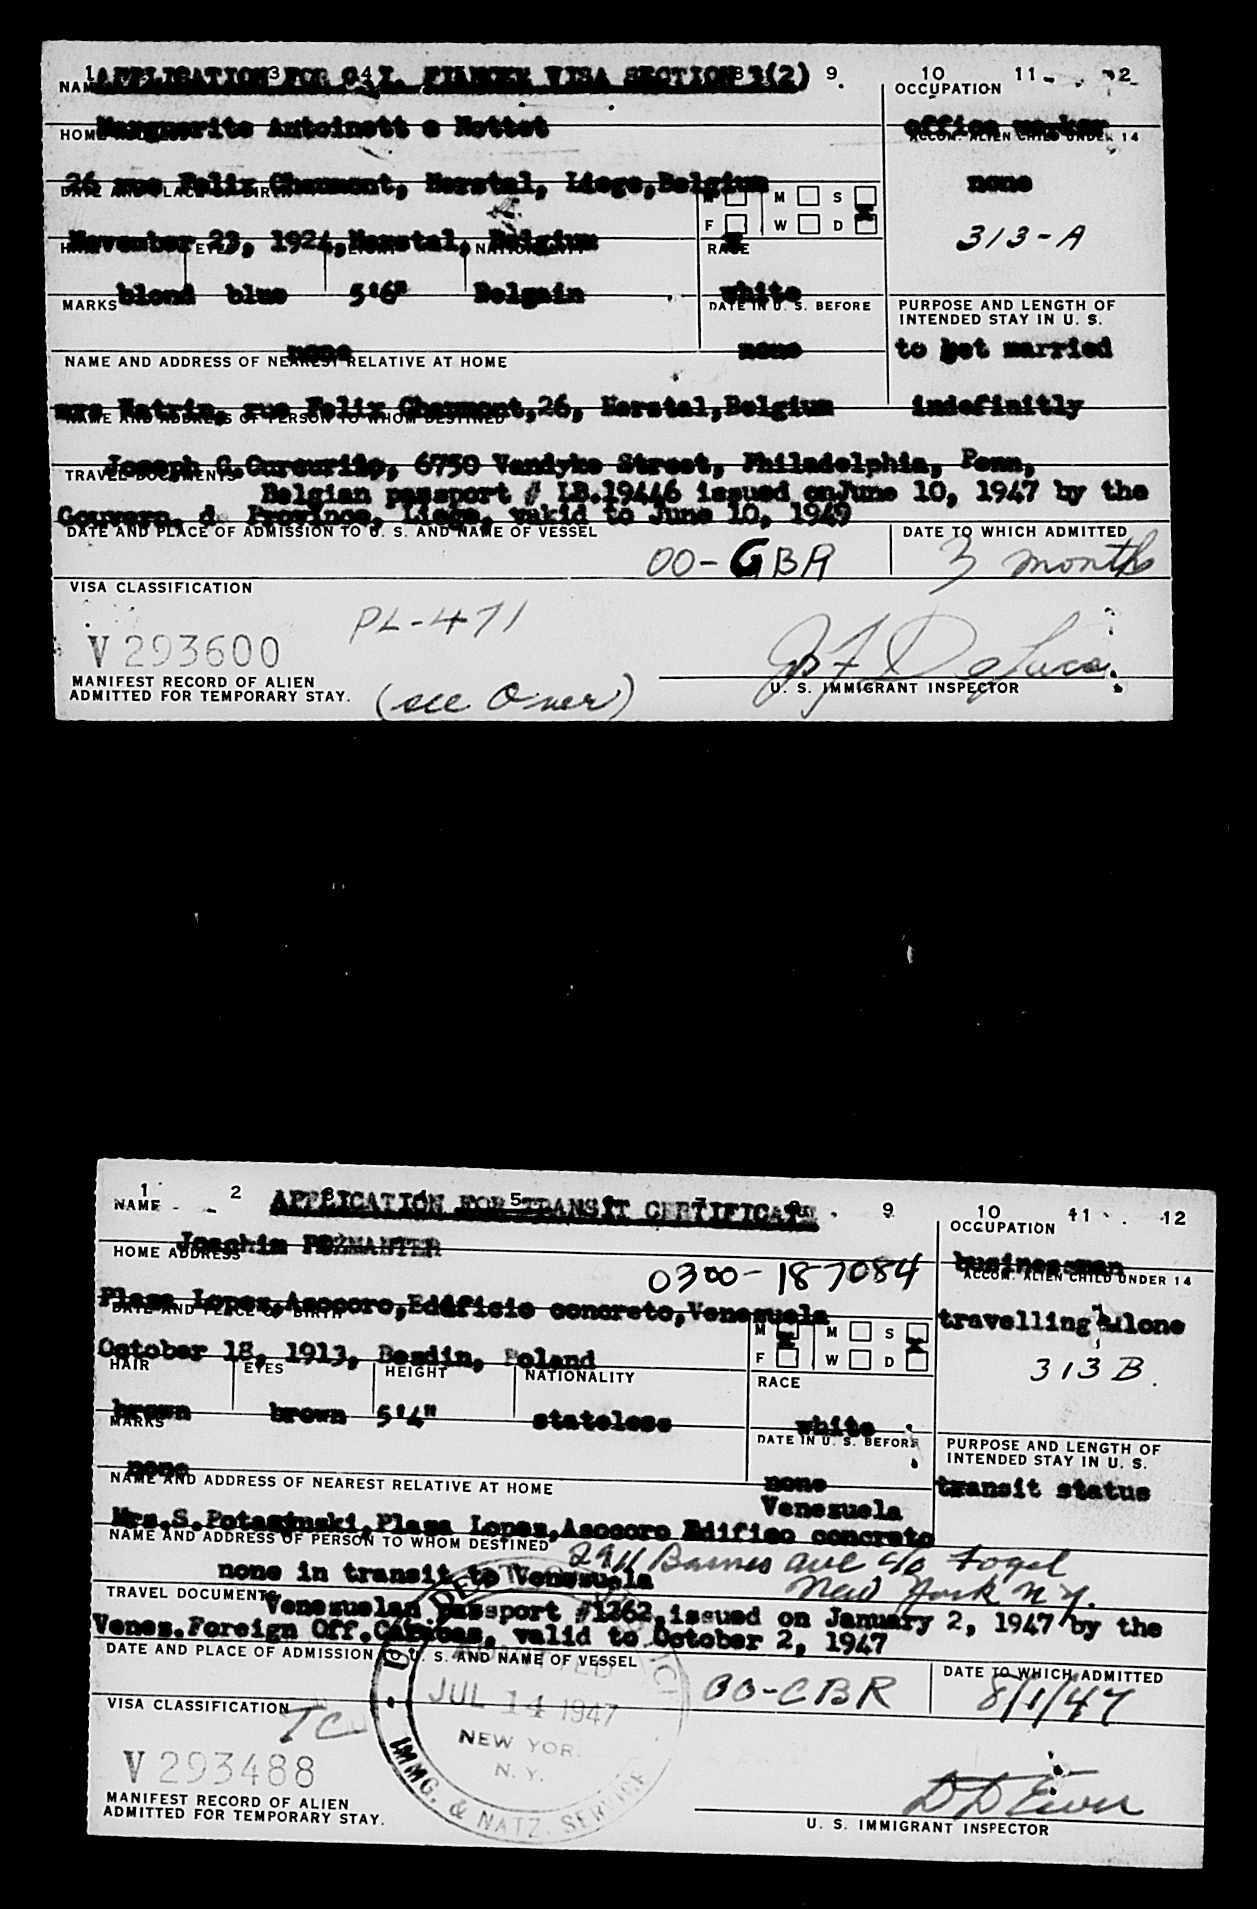 1 3 4 8 9. 10 11 12
NAME APPLICATION FOR G.I. FIANCEE VISA SECTION 3(2) OCCUPATION
HOME Marguerite Antoinett e Nottet office worker
ACCOM. ALIEN CHILD UNDER 14
26 rue Felix Chaumont, Herstal, Liege,Belgium none
DATE AND PLACE OF BIRTH M M S
F W D
November 23, 1924,Herstal, Belgium 313-A
HAIR EYES HEIGHT NATIONALITY RACE
blond blue 5'6" Belgain white
MARKS DATE IN U. S. BEFORE PURPOSE AND LENGTH OF
INTENDED STAY IN U. S.
none none to get married
NAME AND ADDRESS OF NEAREST RELATIVE AT HOME
mrs Katrin, rue Felix Chaumont,26, Herstal,Belgium indefinitly
NAME AND ADDRESS OF PERSON TO WHOM DESTINED
Joseph G. , 6750 Vandyke Street, Philadelphia, Penn,
TRAVEL DOCUMENTS
Belgian passport # LB.19446 issued onJune 10, 1947 by the
Gouvern. d Province, Liege, vakid to June 10, 1949
DATE AND PLACE OF ADMISSION TO U. S. AND NAME OF VESSEL DATE TO WHICH ADMITTED
00-GBR 3 months
VISA CLASSIFICATION
PL-471
V 293600
MANIFEST RECORD OF ALIEN
ADMITTED FOR TEMPORARY STAY. (see over) U. S. IMMIGRANT INSPECTOR
1 2 5 9 10 11 12
NAME APPLICATION FOR TRANSIT CERTIFICATE OCCUPATION
Joachim businessman
HOME ADDRESS ACCOM. ALIEN CHILD UNDER 14
0300-187084
Plaza Lopez,Asocoro,Edificio concreto,Venezuela travelling alone
DATE AND PLACE OF BIRTH M M S
F W D
October 18, 1913, Bendin, Poland 313 B.
HAIR EYES HEIGHT NATIONALITY RACE
brown brown 5'4" stateless white
MARKS DATE IN U. S. BEFORE PURPOSE AND LENGTH OF
INTENDED STAY IN U. S.
none none transit status
NAME AND ADDRESS OF NEAREST RELATIVE AT HOME
Venezuela
Mrs.S.Potasznski,Plaza Lopez,Asocoro Edifico concreto
NAME AND ADDRESS OF PERSON TO WHOM DESTINED
2911 Barnes ave c/o Fogel
none in transit to Venezuela New York N Y.
TRAVEL DOCUMENTS
Venezuelan passport #1262,issued on January 2, 1947 by the
Venez.Foreign Off.Caracas, valid to October 2, 1947
DATE AND PLACE OF ADMISSION TO U. S. AND NAME OF VESSEL DATE TO WHICH ADMITTED
00-CBR 8/1/47
VISA CLASSIFICATION TC
JUL 14 1947
NEW YORK
N. Y.
IMMG. & NATZ. SERVICE
V 293488
MANIFEST RECORD OF ALIEN
ADMITTED FOR TEMPORARY STAY. U. S. IMMIGRANT INSPECTOR